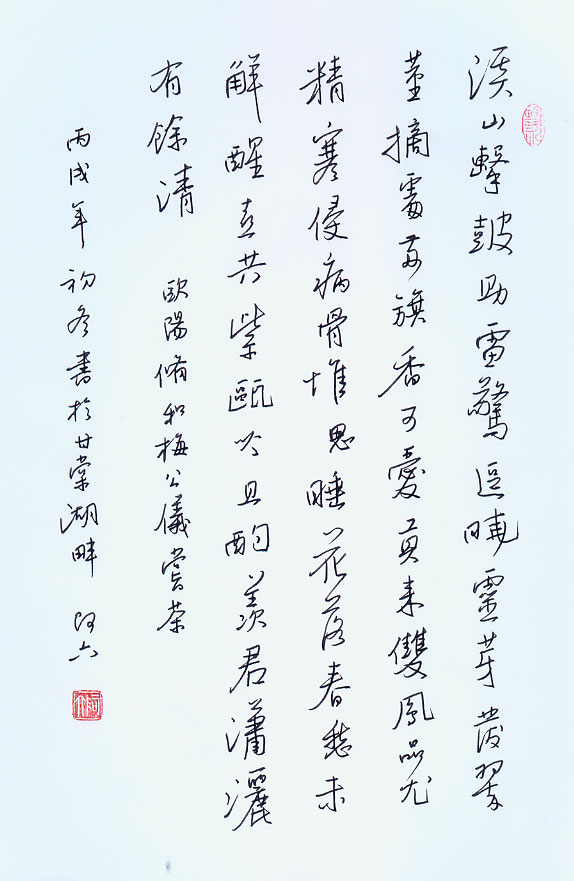 溪山擊鼓助雷驚逗曉靈芽發翠
莖摘處兩旗香可愛貢來雙鳳品尤
精寒侵病骨惟思睡花落春愁未
解醒喜共紫甌吟且酌羨君瀟灑
有餘清
歐陽脩和梅公儀嘗茶
丙戌年初冬書於甘棠湖畔 阿六